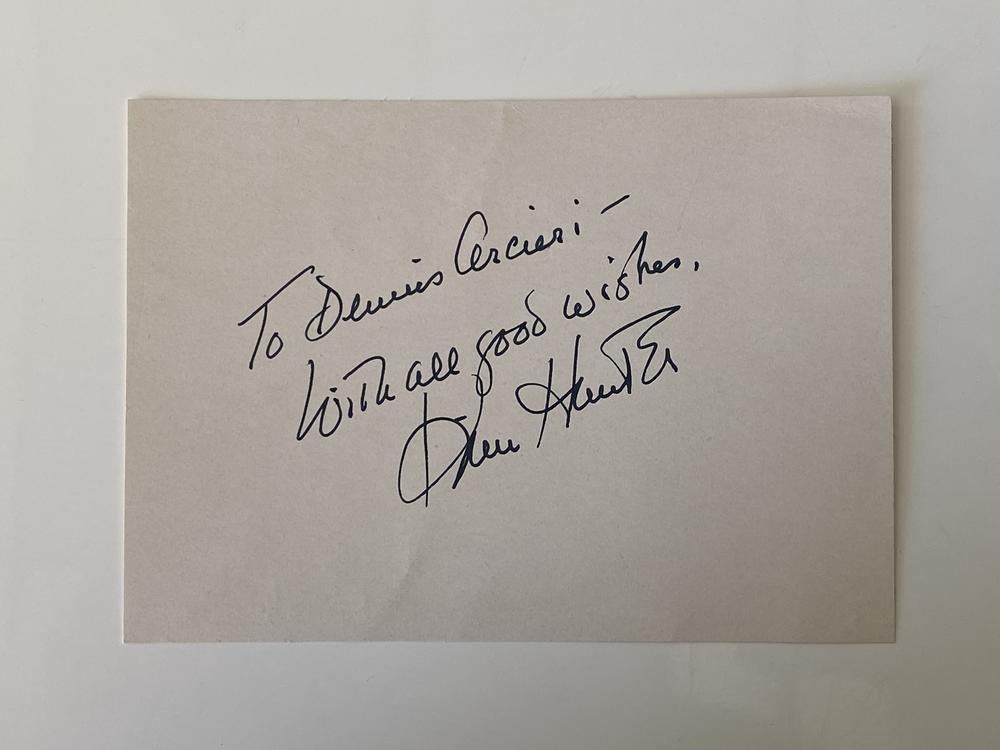 To Dennis Arcieri –
With all good wishes.
Kim Hunter